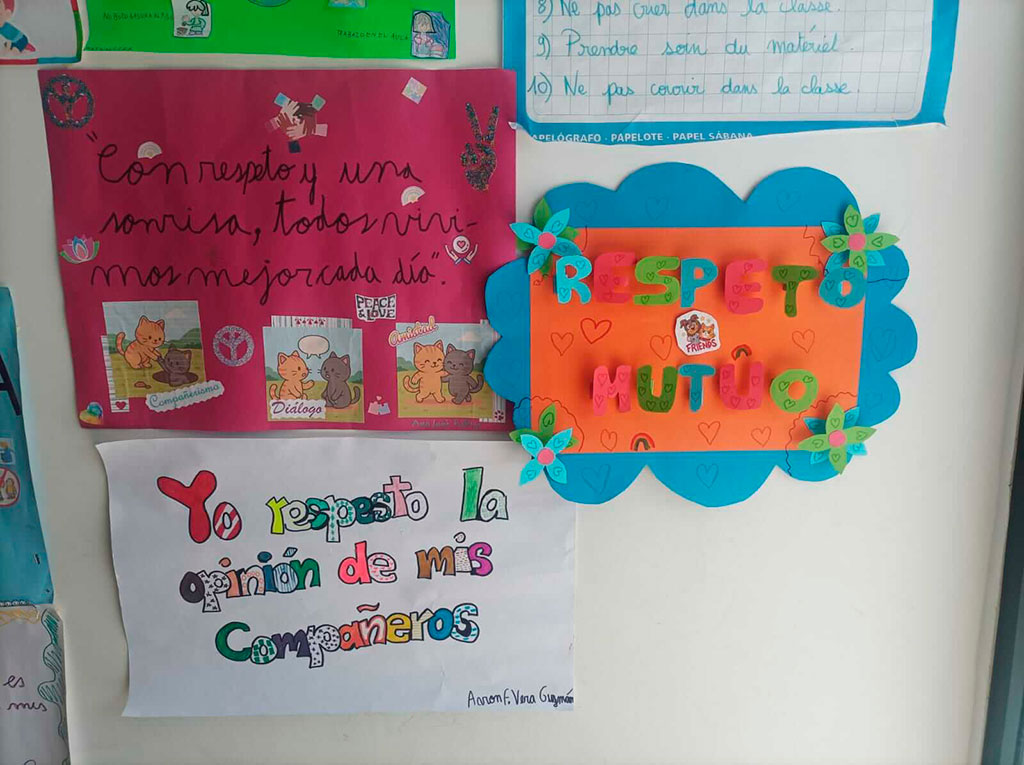 8) Ne pas crier dans la classe.
9) Prendre soin du matériel.
10) Ne pas courir dans la classe.
APELÓGRAFO - PAPELOTE - PAPEL SÁBANA
"Con respeto y una
sonrisa, todos vivi-
mos mejor cada día".
PEACE
& LOVE
Compañerismo
Diálogo
Amistad
RESPETO
FRIENDS
MUTÚO
Yo respesto la
opinión de mis
Compañeros
Aaron F. Vera Guzmán
es
mis